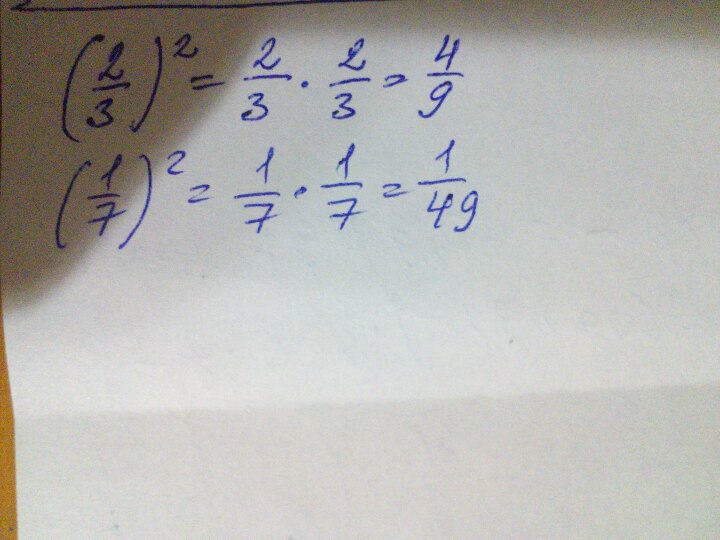 (2/3)² = 2/3 · 2/3 = 4/9
(1/7)² = 1/7 · 1/7 = 1/49